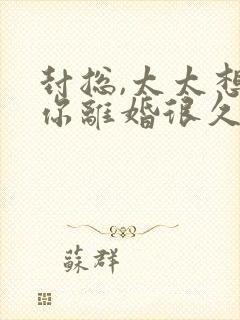 封总,太太想
你離婚很久
蘇群